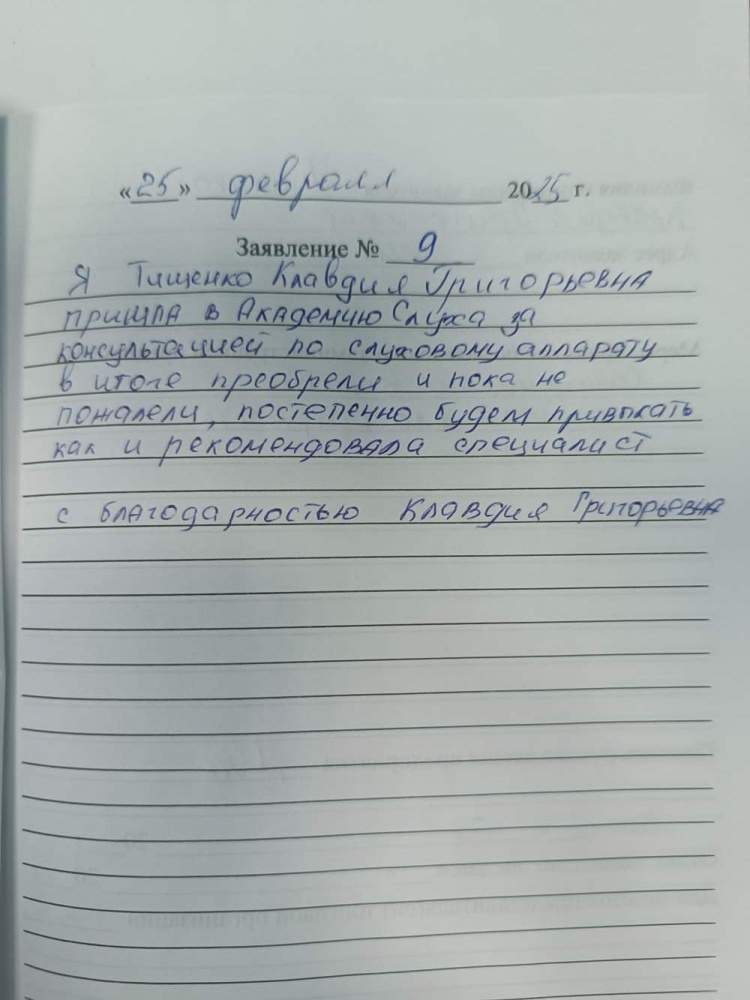 «25» февраля 2025 г.
Заявление № 9
Я Тищенко Клавдия Григорьевна
пришла в Академию Слуха за
консультацией по слуховому аппарату
в итоге преобрели и пока не
пожалели, постепенно будем привыкать
как и рекомендовала специалист
с благодарностью Клавдия Григорьевна